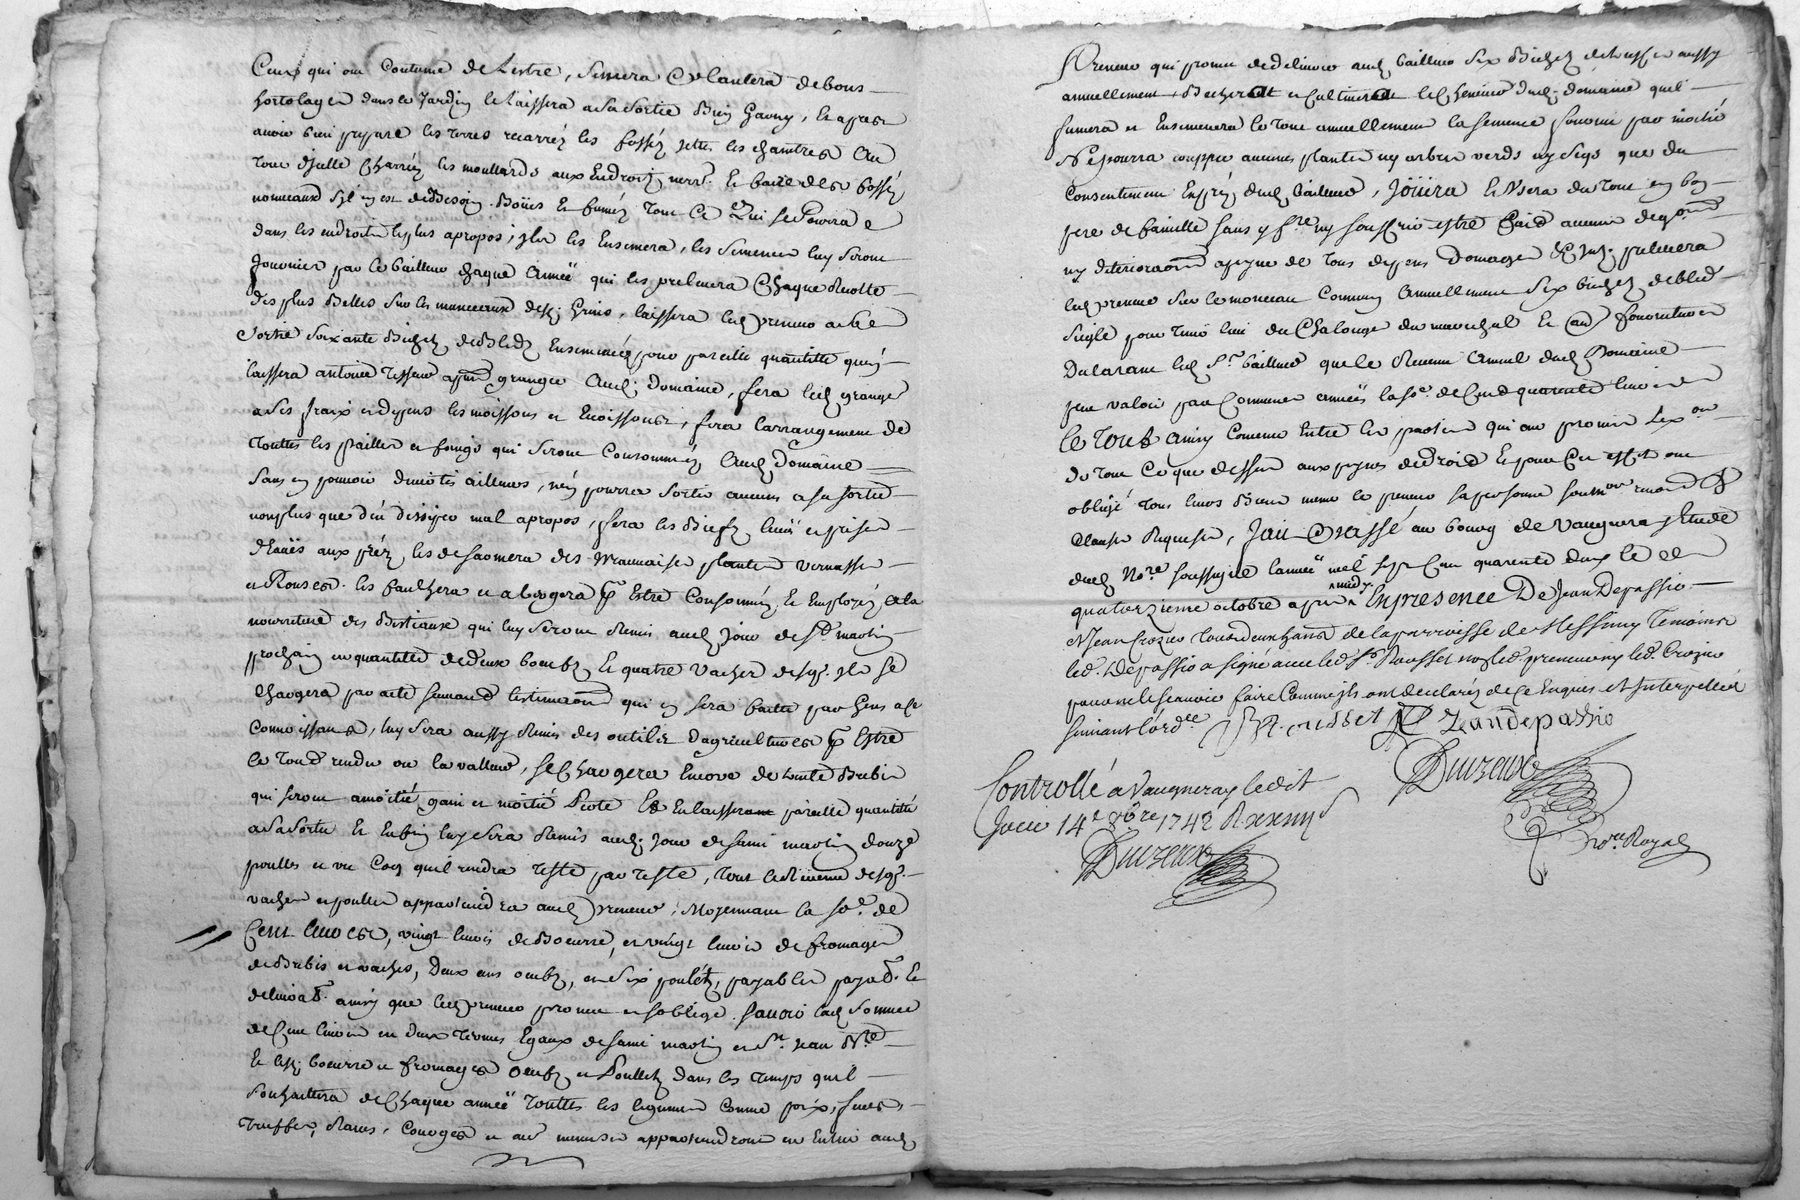 Ceux qui ont Coutume de Lestre, Semera et plantera de bons
hortolages dans le Jardin le laissera a sa sortie bien garny, et apres
avoir bien preparé les terres recurrés les fossés jetté les chaintres
tout charriés les moullards aux Endroits et faire des fossés
nouveaux s'il en est de Besoin. Boües et fumés tout ce qui se pourra
dans les endroits les plus apropos, il les Ensemera, les Semences luy seront
fournies par le bailleur chaque année qui les prelevera chaque recolte
des plus belles sur les monceaux desd. grains, laissera led. preneur a sa
sortie soixante Bichets de Bleds Ensemencés pour pareille quantitté qu'en
laissera antoine Tisseur grangier aud. domaine, fera led. granger
a ses fraix et depens les moissons et, fera l'arrangement de
touttes les pailles et foings qui seront Consommés aud. Domaine
sans en pouvoir divertir ailleurs, n'en pourra sortir aucuns a sa sortie
nonplus que d'en dissiper mal apropos, fera les Biefs, levées et prises
d'eaües aux prés, les de mauvaises plantes vernasses
et Ronses. les fauchera et Estre Consommés et Employés a la
nourriture des Bestiaux qui luy seront Remis aud. Jour de St. martin
prochain en quantitté de deux boeufs et quatre vaches desq. il se
chargera par acte suivant l'estimation qui en sera faitte par gens a ce
Connoissants, luy sera aussy Remis des outils d'agriculture p. Estre
le tout rendu ou la valleur, se Chargera Encore de trente Brebis
qui seront a moitié gain et moitié Perte En laissera pareille quantitté
a sa sortie Et Enfin luy sera Remis aud. Jour de saint martin douze
poulles et un Coq qu'il rendra teste par teste, tout le Revenu desq.
vaches et poulles appartiendra aud. preneur, Moyennant la so.e de
Cent livres, vingt livres de Boeurre, et vingt livres de fromages
de Brebis et vaches, deux cens oeufs, et six poulets, payables
ainsy que led. preneur promet et s'oblige. sçavoir lad. somme
de Cent livres en deux termes Egaux de saint martin et St. Jean B.te
Et lesd. boeurre et fromages oeufs et Poullets dans les temps qu'il
souhaittera de chaque année touttes les legumes comme poix, feves,
truffes, Raves, Courges et autres menues appartiendront en Entier aud.
Preneur qui promet de delivrer aud. bailleur six Bichets aussy
annuellement. Bechera et Cultivera le Cheneviere dud. domaine qu'il
fumera et Ensemencera le tout annuellement la semence fournie par moitié
Ne pourra coupper aucunes plantes ny arbres verds ny secs que du
Consentement Exprés dud. bailleur, Joüira et Usera du tout en bon
pere de famille sans y f.re ny souffrir estre fait aucune degradation
ny deterioration a peyne de tous depens domages Et Int. prelevera
led. preneur sur le monceau Commun annuellement six bichets de bled
seigle pour tenir lieu du Chalonge du marechal Et fournitures
Declarant led. S.r bailleur que le Revenu annuel dud. Domaine
peut valoir par Commune année la so.e de Cent quarante livres
le tout ainsy Convenu Entre les parties qui ont promis
de tout ce que dessus aux peynes de droit Et pour Cet effet ont
obligé tous leurs Biens meme le preneur sa personne
clauses Requises, fait et Passé au bourg de Vaugneray Etude
dud. No.re soussigné l'année mil sept Cent quarante deux le
quatorzieme octobre apres midy En presence De Jean Depassio
et Jean Crozier tous deux habitants de la parroisse de Messimy Temoins
led. Depassio a signé avec led. S.r Rousset non led. preneur ny led. Crozier
pour ne le scavoir faire Comme ils ont declarés de Ce Enquis et Interpellés
suivant l'ord.ce Rousset Jean depassio
Duizeux
Controllé a Vaugneray ledit
Jour 14.e 8bre 1742 R
Duizeux
no.re Royal